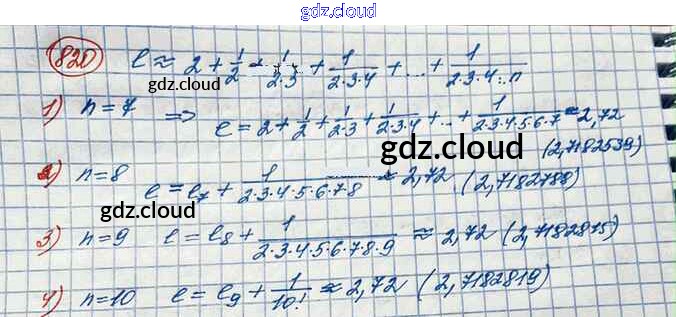 gdz.cloud
820) e ≈ 2 + 1/2 + 1/2·3 + 1/2·3·4 + ... + 1/2·3·4...n
gdz.cloud
1) n=7 => e = 2 + 1/2 + 1/2·3 + 1/2·3·4 + ... + 1/2·3·4·5·6·7 ≈ 2,72
gdz.cloud (2,7182539)
2) n=8 e = e₇ + 1/2·3·4·5·6·7·8 ≈ 2,72 (2,7182788)
gdz.cloud
3) n=9 e = e₈ + 1/2·3·4·5·6·7·8·9 ≈ 2,72 (2,7182815)
gdz.cloud
4) n=10 e = e₉ + 1/10! ≈ 2,72 (2,7182819)